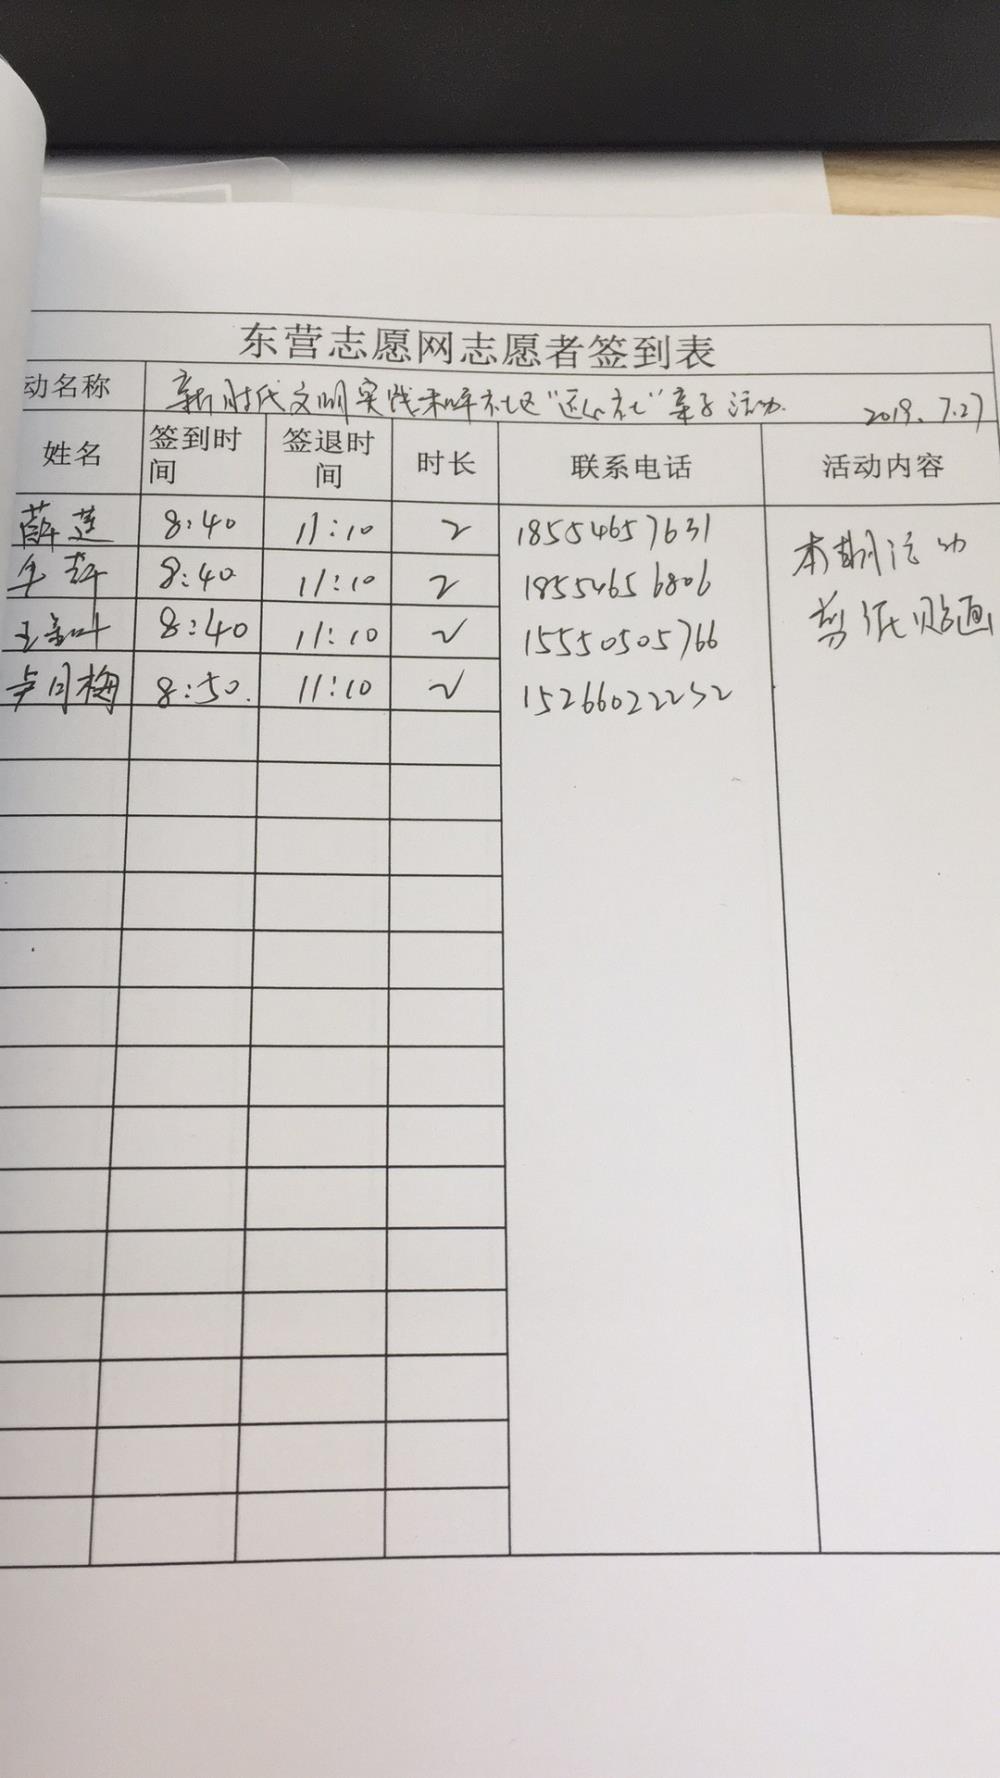 东营志愿网志愿者签到表
动名称 新时代文明实践 社区 亲子活动. 2019.7.27
姓名 签到时间 签退时间 时长 联系电话 活动内容
薛莲 8:40 11:10 2 18554657631 本期活动
8:40 11:10 2 18554656806 剪纸贴画
王 8:40 11:10 2 15550505766
卢月梅 8:50. 11:10 2 15266022232